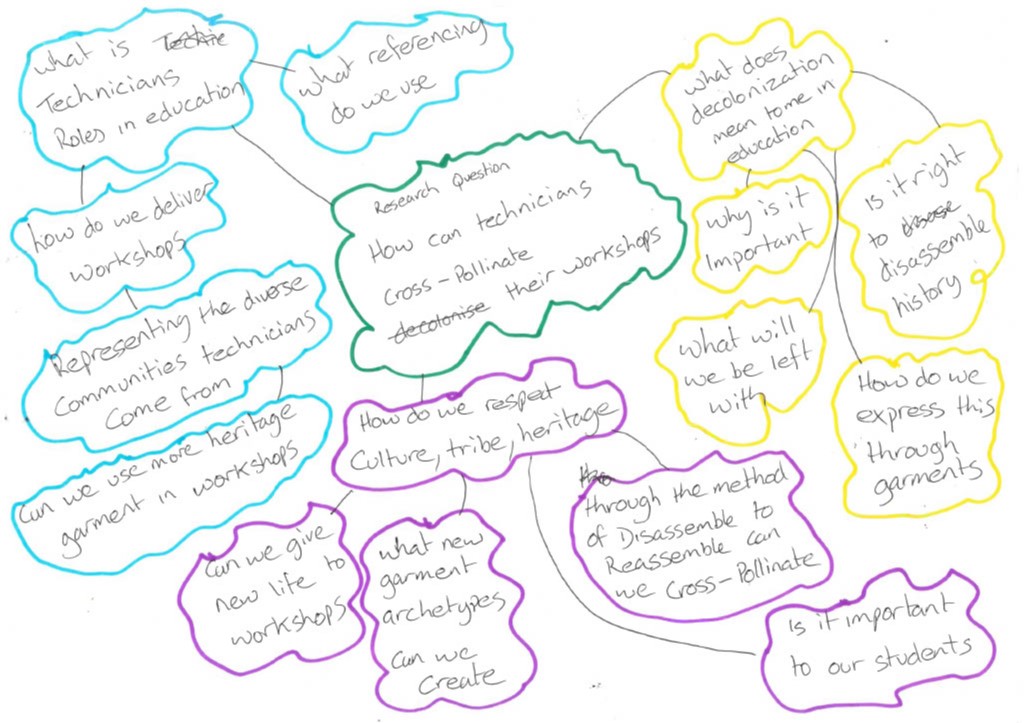 what is Techie
Technicians
Roles in education
what referencing
do we use
how do we deliver
workshops
Representing the diverse
communities technicians
come from
Can we use more heritage
garment in workshops
Research Question
How can technicians
Cross-Pollinate
decolonise their workshops
what does
decolonization
mean to me in
education
why is it
Important
Is it right
to
disassemble
history
what will
we be left
with
How do we
express this
through
garments
How do we respect
Culture, tribe, heritage
Can we give
new life to
workshops
what new
garment
archetypes
Can we
Create
through the method
of Disassemble to
Reassemble can
we Cross-Pollinate
Is it important
to our students